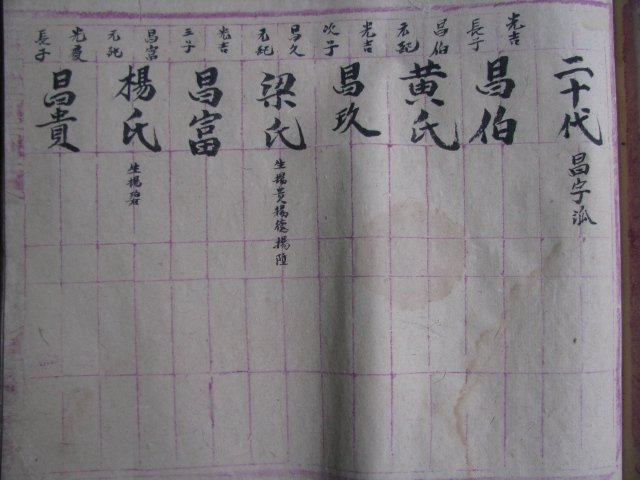 二十代
昌字派
光吉
長子
昌伯
昌伯
元配
黃氏
光吉
次子
昌玖
昌久
元配
梁氏
生揚貴揚德揚陞
光吉
三子
昌富
昌富
元配
楊氏
生揚
光慶
長子
昌貴